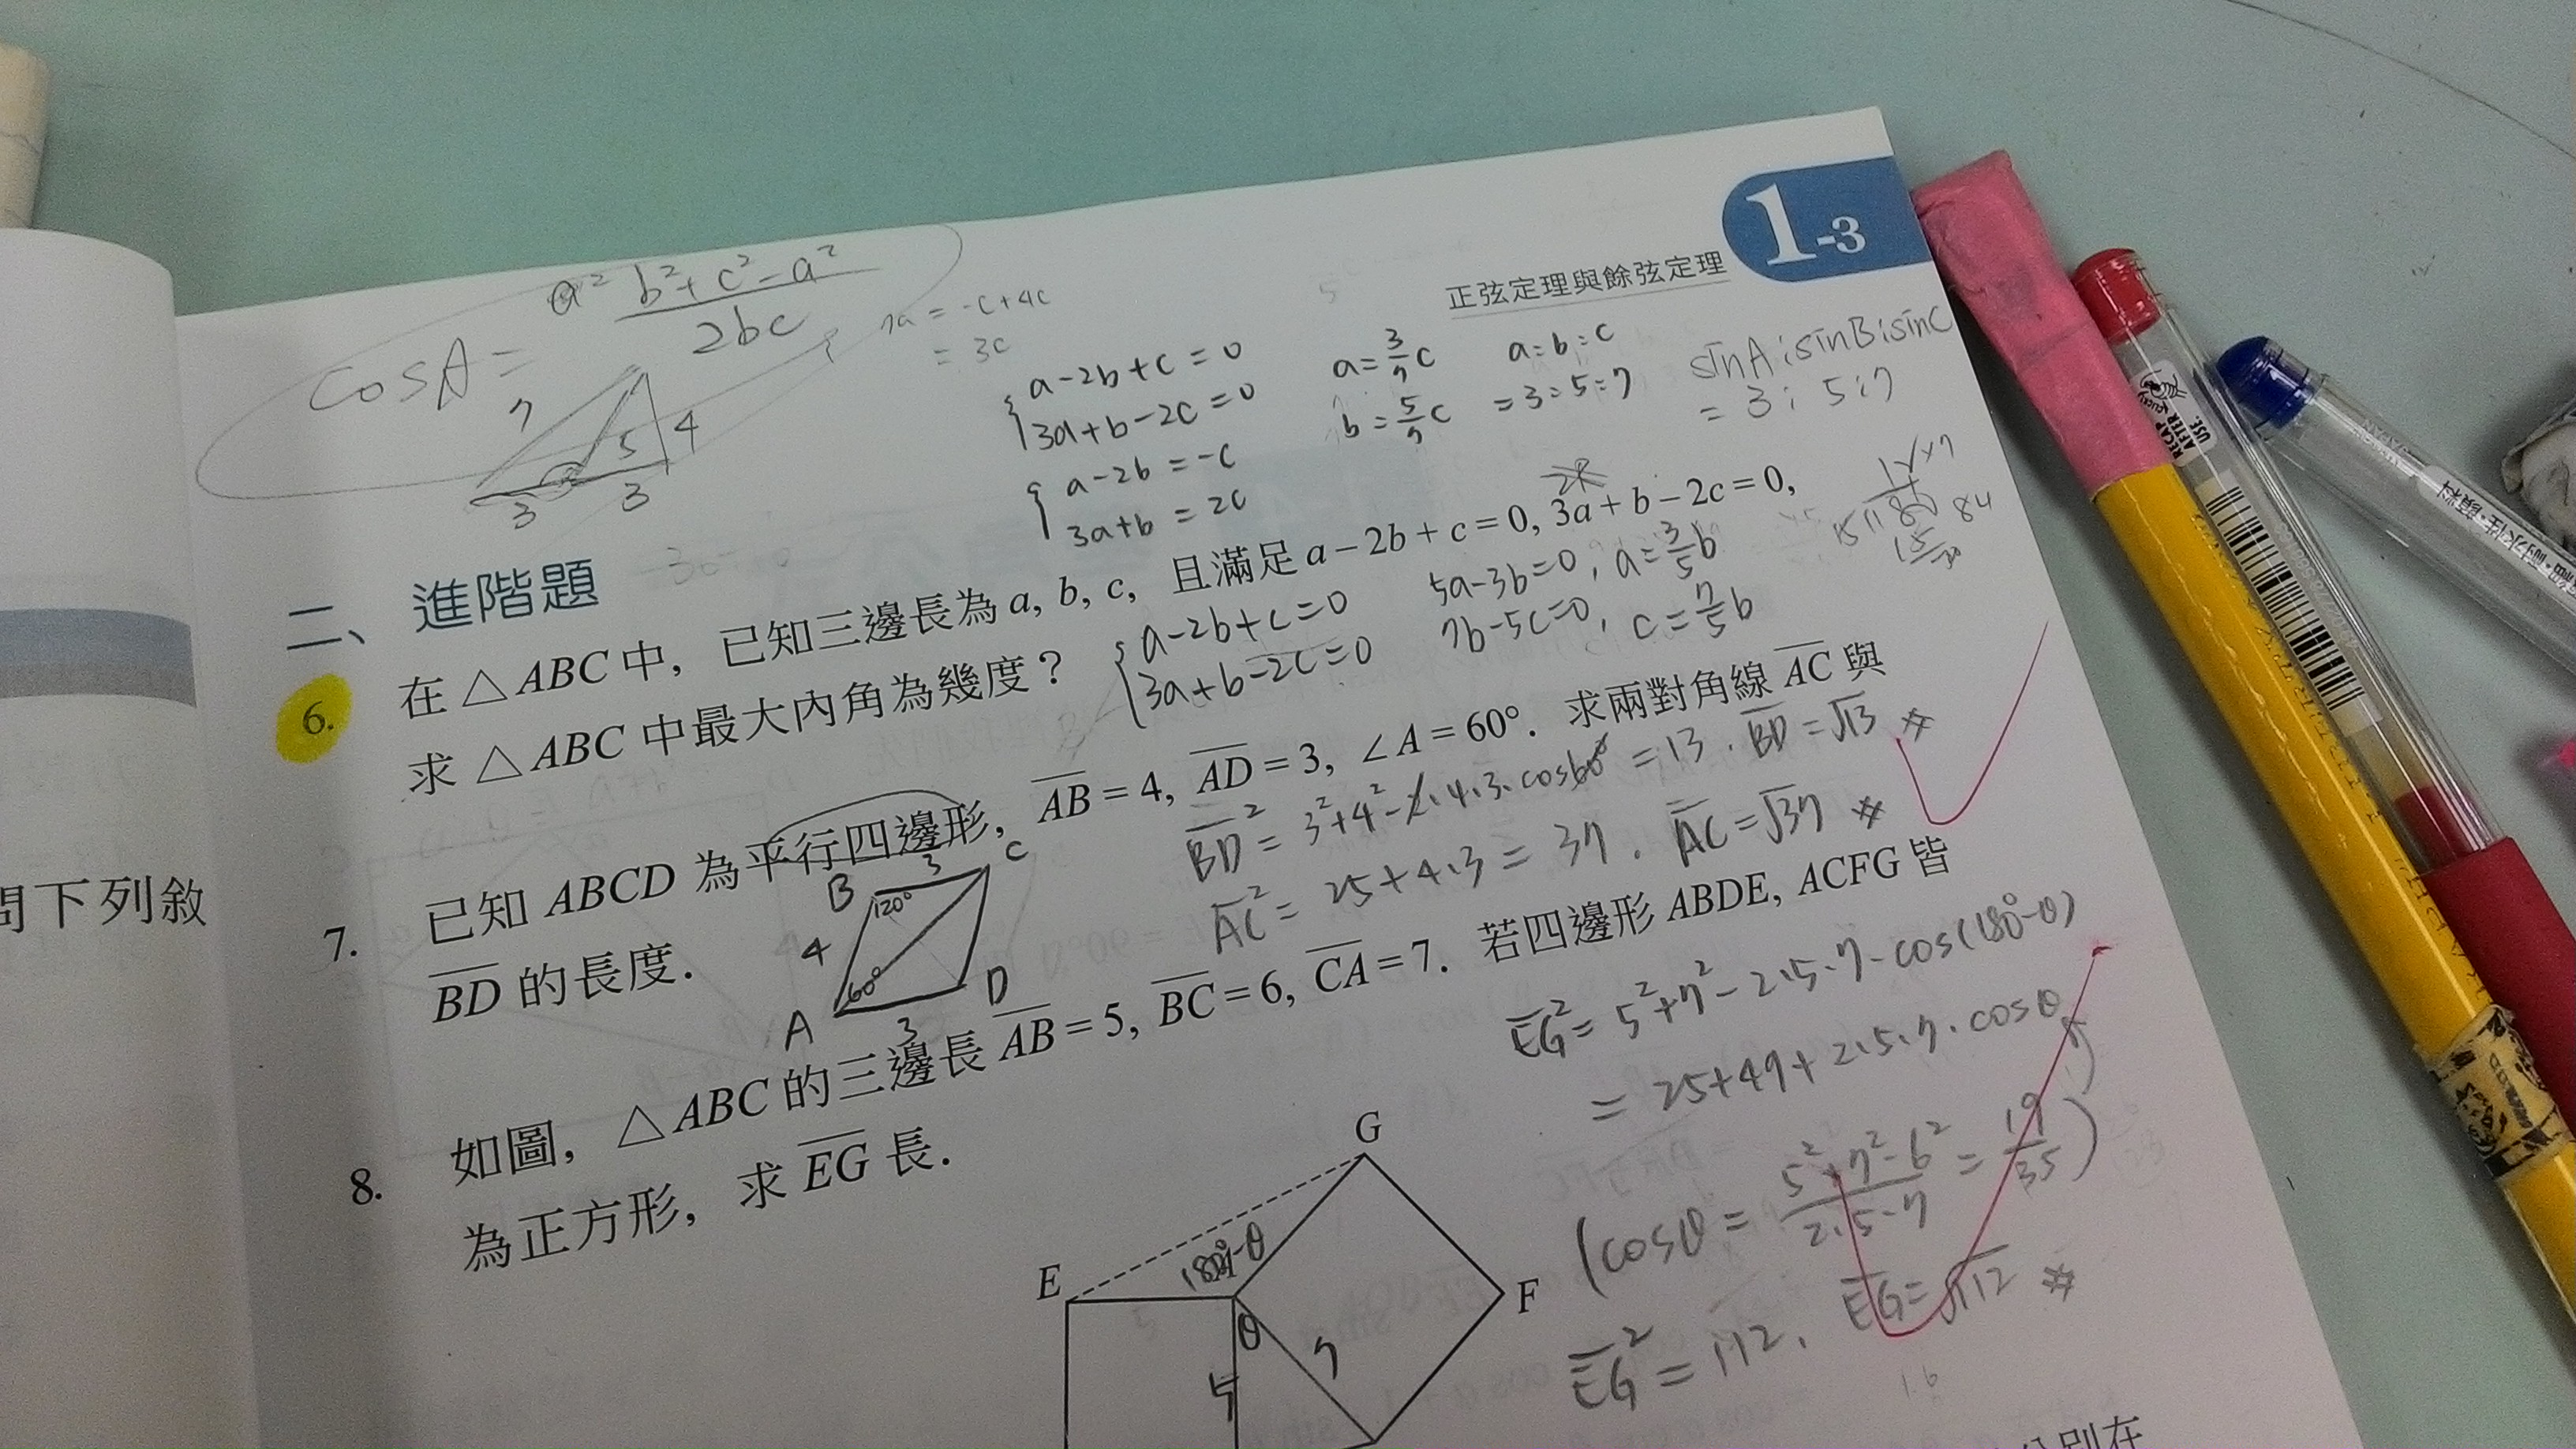 1-3
正弦定理與餘弦定理
cosA = b²+c²-a² / 2bc
7a = -c+4c
= 3c
7
5
4
3
3
a-2b+c=0
3a+b-2c=0
a-2b=-c
3a+b=2c
a=3/7c
b=5/7c
a:b:c
=3:5:7
sinA:sinB:sinC
=3:5:7
二、進階題
6. 在△ABC中, 已知三邊長為a, b, c, 且滿足a-2b+c=0, 3a+b-2c=0,
求△ABC中最大內角為幾度?
a-2b+c=0
3a+b-2c=0
5a-3b=0, a=3/5b
7b-5c=0, c=7/5b
7. 已知ABCD為平行四邊形, AB=4, AD=3, ∠A=60°. 求兩對角線AC與
BD的長度.
BD²=3²+4²-2·4·3·cos60°=13. BD=√13 #
AC²=25+4·3=37. AC=√37 #
B
3
C
120°
4
60°
A
3
D
8. 如圖, △ABC的三邊長AB=5, BC=6, CA=7. 若四邊形ABDE, ACFG皆
為正方形, 求EG長.
EG²=5²+7²-2·5·7·cos(180°-θ)
=25+49+2·5·7·cosθ
(cosθ=5²+7²-6²/2·5·7=19/35)
EG²=112, EG=√112 #
G
E
180°-θ
F
θ
5
7
問下列敘
分別在
RECAP
AFTER
USE.